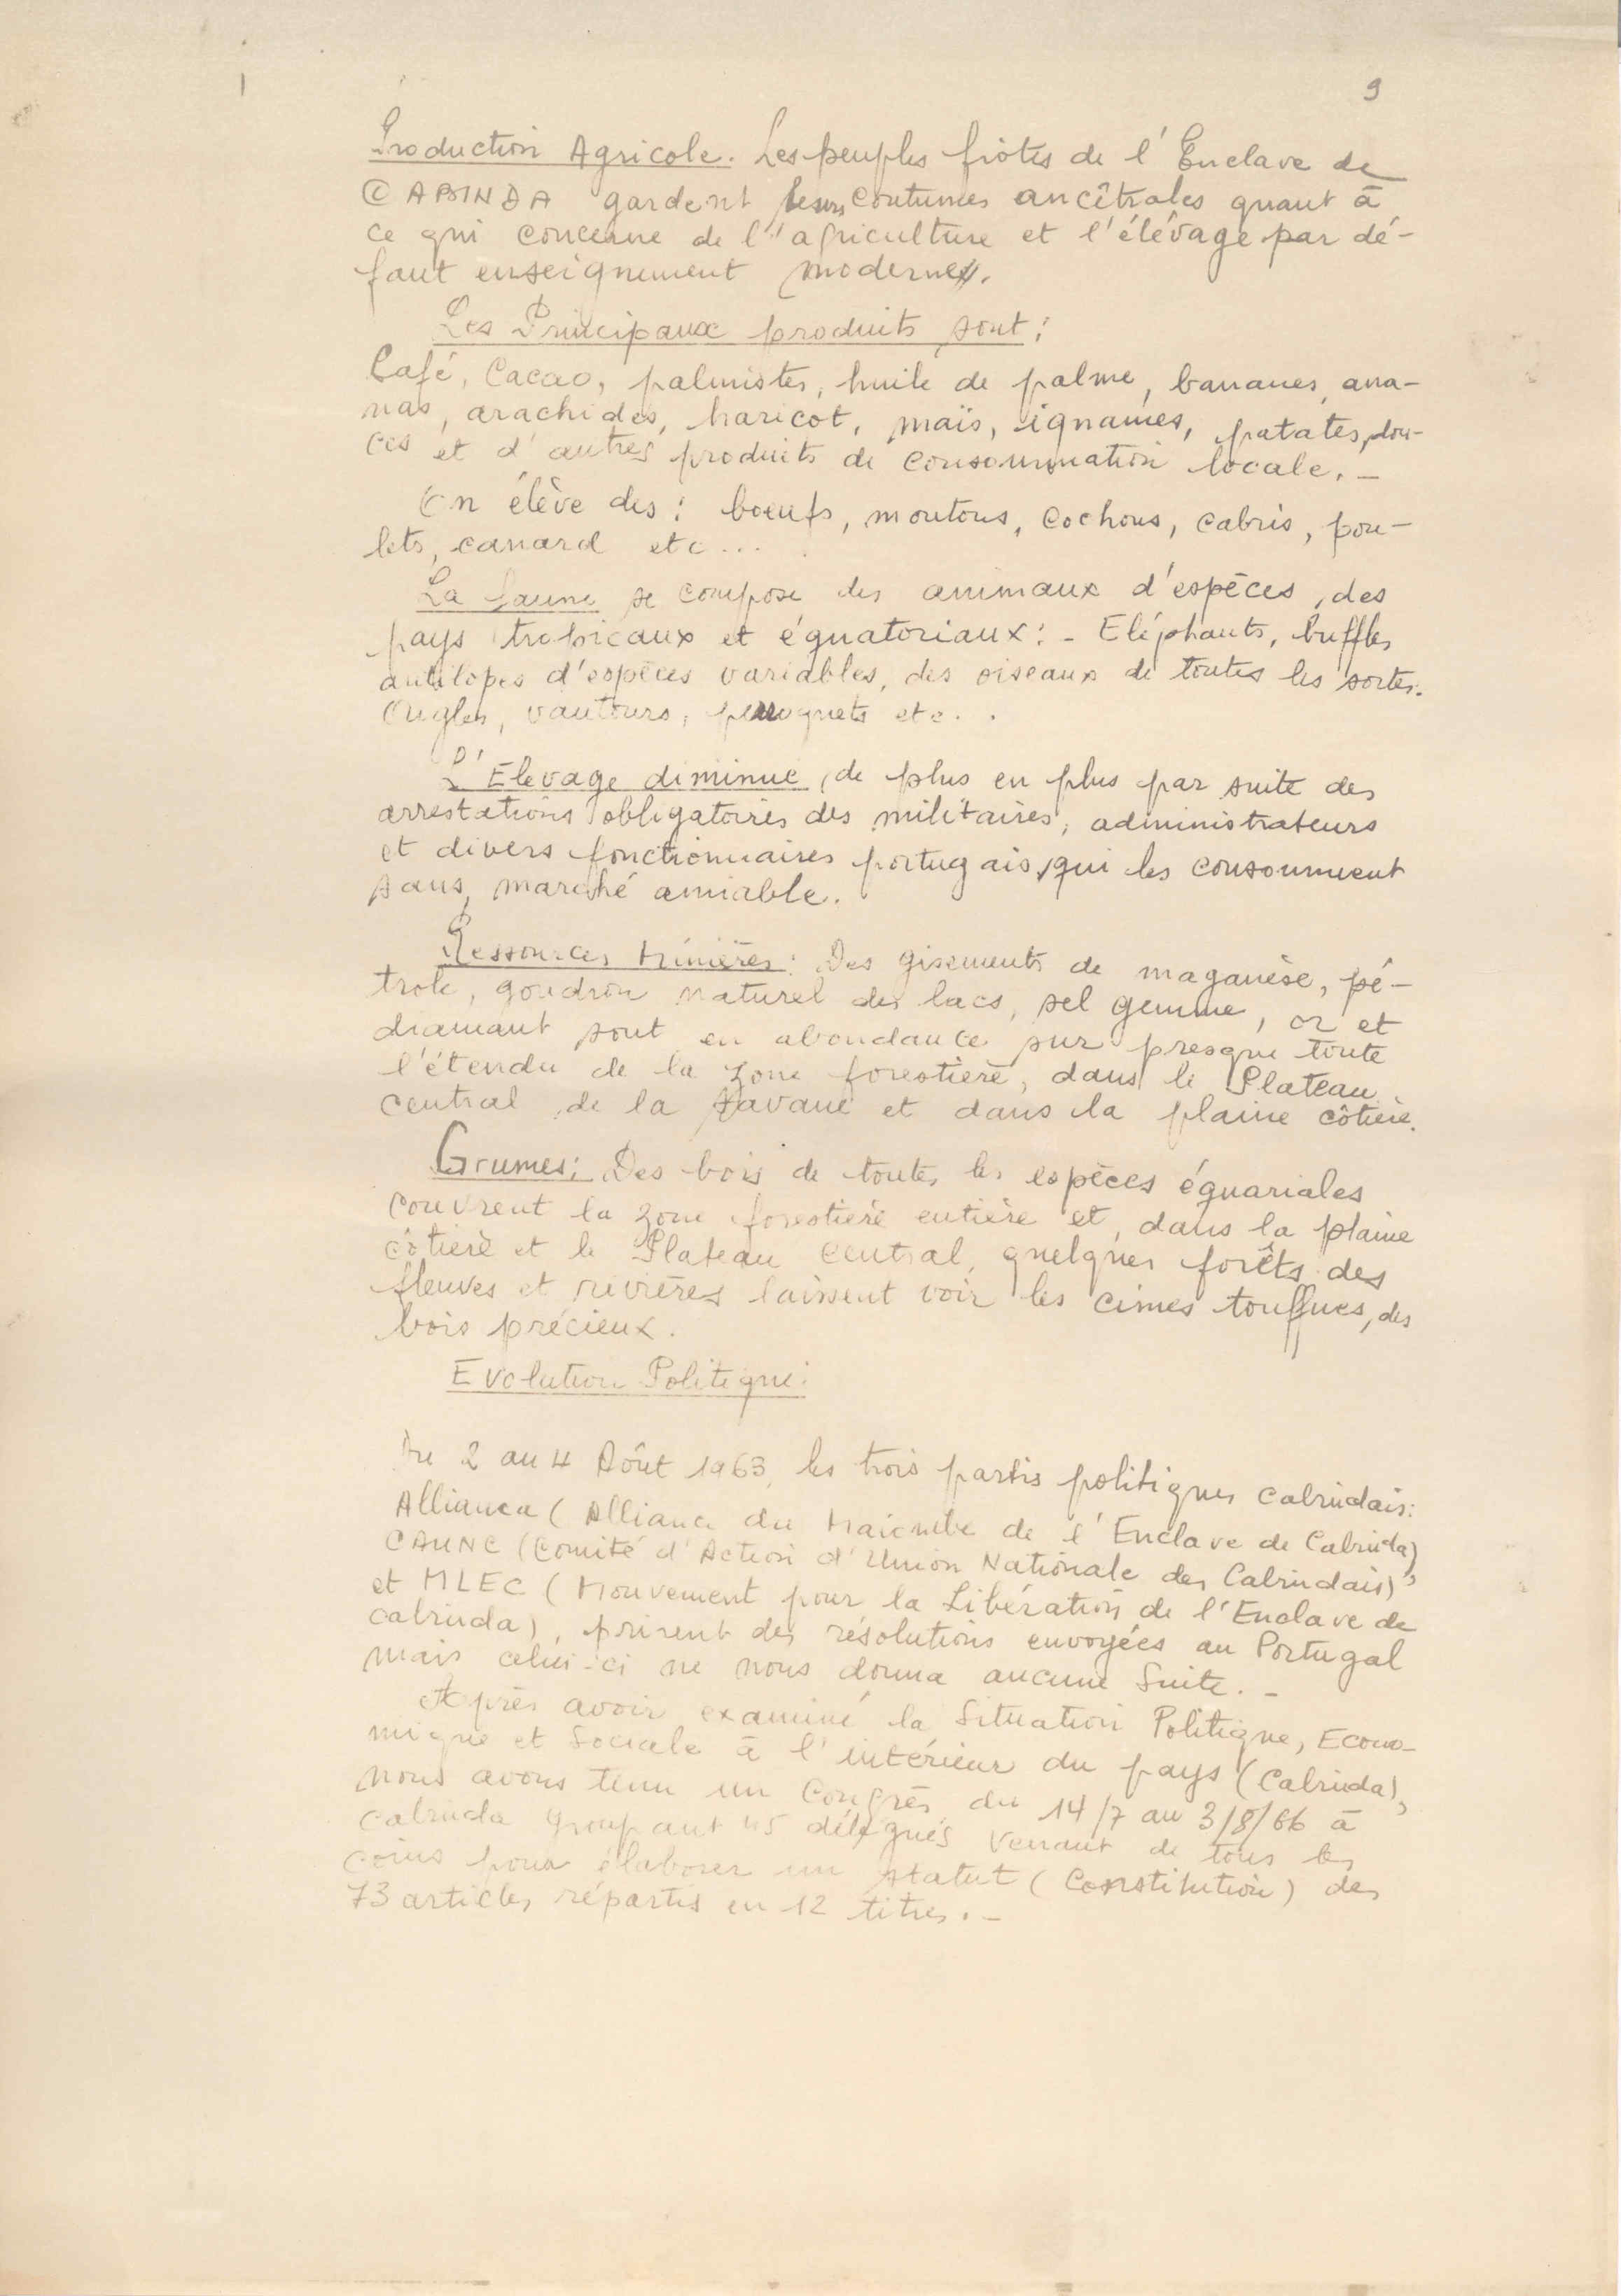 9
Production Agricole. Les peuples fiotes de l'Enclave de
CABINDA gardent leurs coutumes ancêtrales quant à
ce qui concerne de l'agriculture et l'élévage par dé-
faut enseignement moderne.
Les Principaux produits sont :
Café, Cacao, palmistes, huile de palme, bananes, ana-
nas, arachides, haricot, maïs, ignames, patates, dou-
ces et d'autres produits de consommation locale. -
On élève des : boeufs, moutons, cochons, cabris, pou-
lets, canard etc...
La faune se compose des animaux d'espèces, des
pays tropicaux et équatoriaux : - Eléphants, buffles
antilopes d'espèces variables, des oiseaux de toutes les sortes.
vautours, perroquets etc..
L'Elevage diminue, de plus en plus par suite des
arrestations obligatoires des militaires, administrateurs
et divers fonctionnaires portugais, qui les consomment
sans, marché amiable.
Ressources Minières : Des gisements de maganèse, pé-
trole, goudron naturel des lacs, sel gemme, or et
diamant sont en abondance sur presque toute
l'étendu de la zone forestière, dans le Plateau
central, de la savane et dans la plaine côtière.
Grumes : Des bois de toutes les espèces équariales
couvrent la zone forestière entière et, dans la plaine
côtière et le Plateau Central, quelques forêts des
fleuves et rivières laissent voir les cimes touffues, des
bois précieux.
Evolution Politique :
Du 2 au 4 Août 1963, les trois partis politiques cabindais :
Alliama ( Alliance du Maiombe de l'Enclave de Cabinda),
CAUNC (Comité d'Action d'Union Nationale des Cabindais),
et MLEC ( Mouvement pour la Libération de l'Enclave de
Cabinda), prirent des résolutions envoyées au Portugal
mais celui-ci ne nous donna aucune Suite. -
Après avoir examiné la Situation Politique, Econo-
mique et Sociale à l'intérieur du pays (Cabinda),
nous avons tenu un Congrès du 14/7 au 3/8/66 à
Cabinda groupant 45 délégués venant de tous les
coins pour élaborer un statut ( Constitution) des
73 articles répartis en 12 titres. -